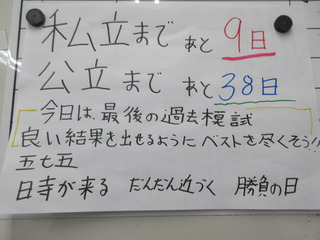 私立まで あと 9日
公立まで あと 38日
今日は、最後の過去模試
良い結果を出せるように ベストを尽くそう!!
五七五
日寺が来る だんだん近づく 勝負の日